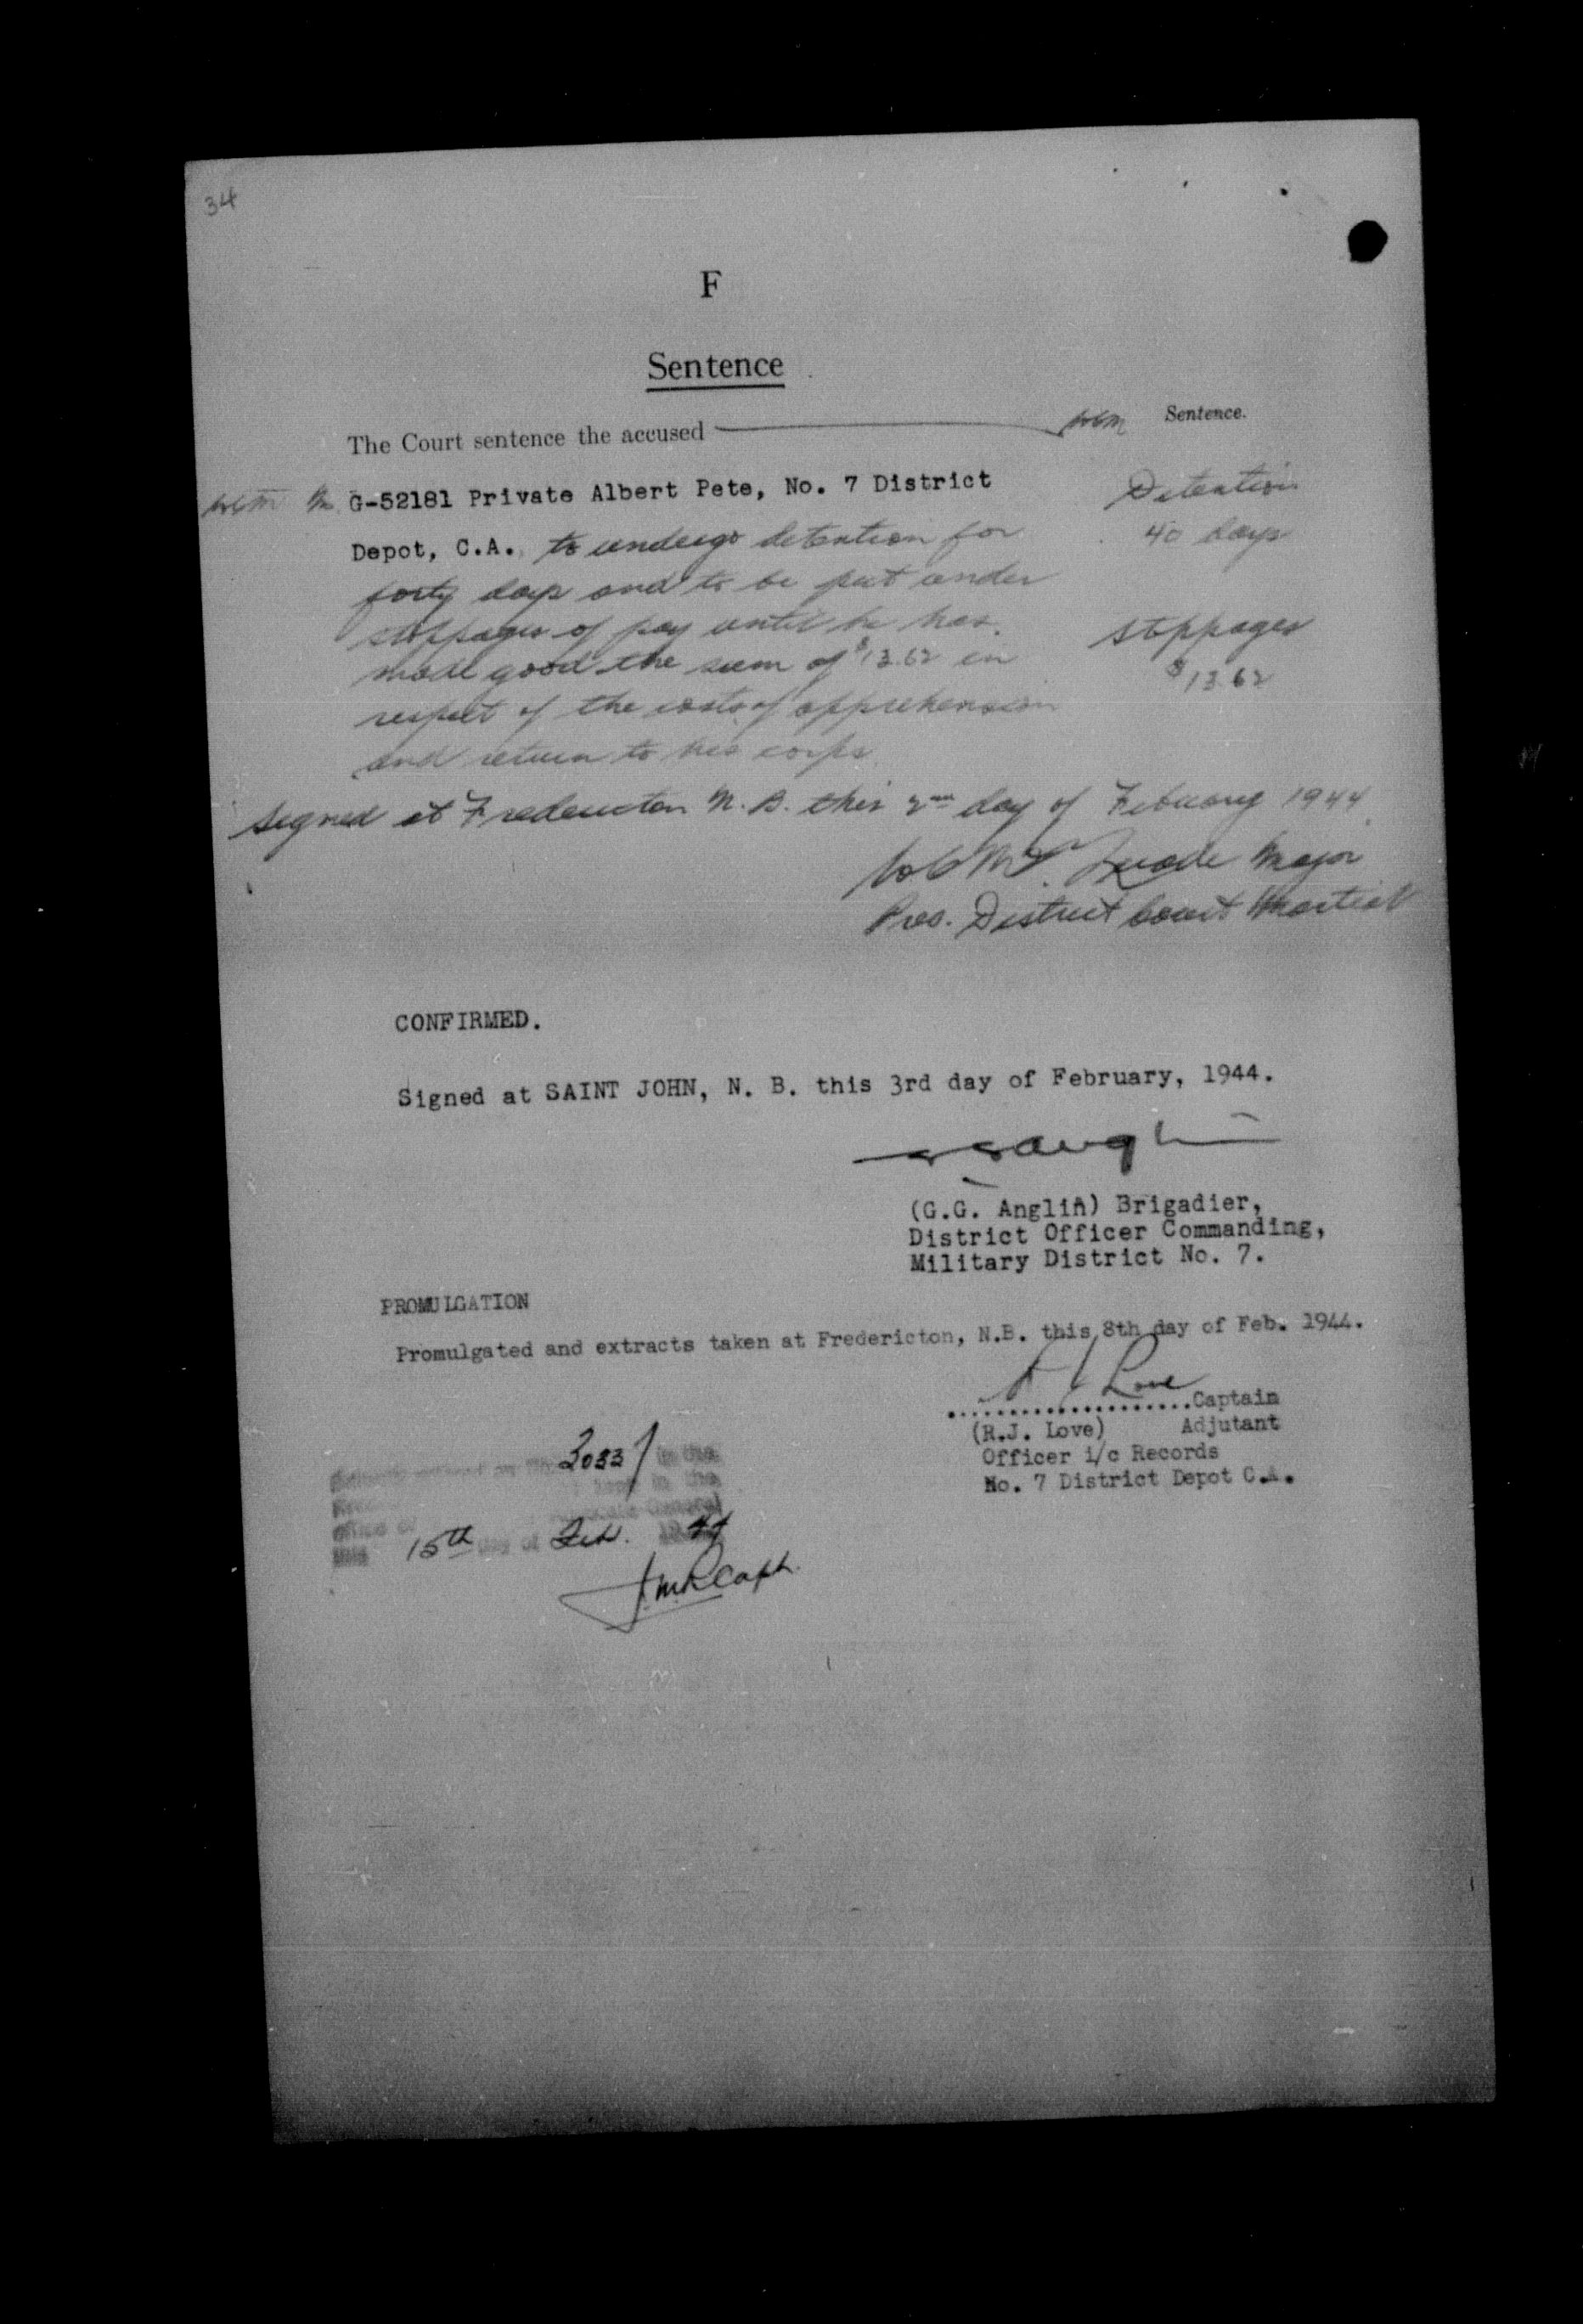 34
F
Sentence
The Court sentence the accused
Sentence.
G-52181 Private Albert Pete, No. 7 District
Detention
Depot, C.A. to undergo detention for
40 days
forty days and to be put under
stoppages of pay until he has
stoppages
made good the sum of $13.62 in
$13.62
respect of the costs of apprehension
and return to his corps
Signed at Fredericton N.B. this 2nd day of February 1944
Major
Pres. District Court Martial
CONFIRMED.
Signed at SAINT JOHN, N. B. this 3rd day of February, 1944.
(G.G. Anglin) Brigadier,
District Officer Commanding,
Military District No. 7.
PROMULGATION
Promulgated and extracts taken at Fredericton, N.B. this 8th day of Feb. 1944.
Love
....................Captain
(R.J. Love) Adjutant
Officer i/c Records
No. 7 District Depot C.A.
in the
in the
office of
15th day of Feb. 44
Capt.